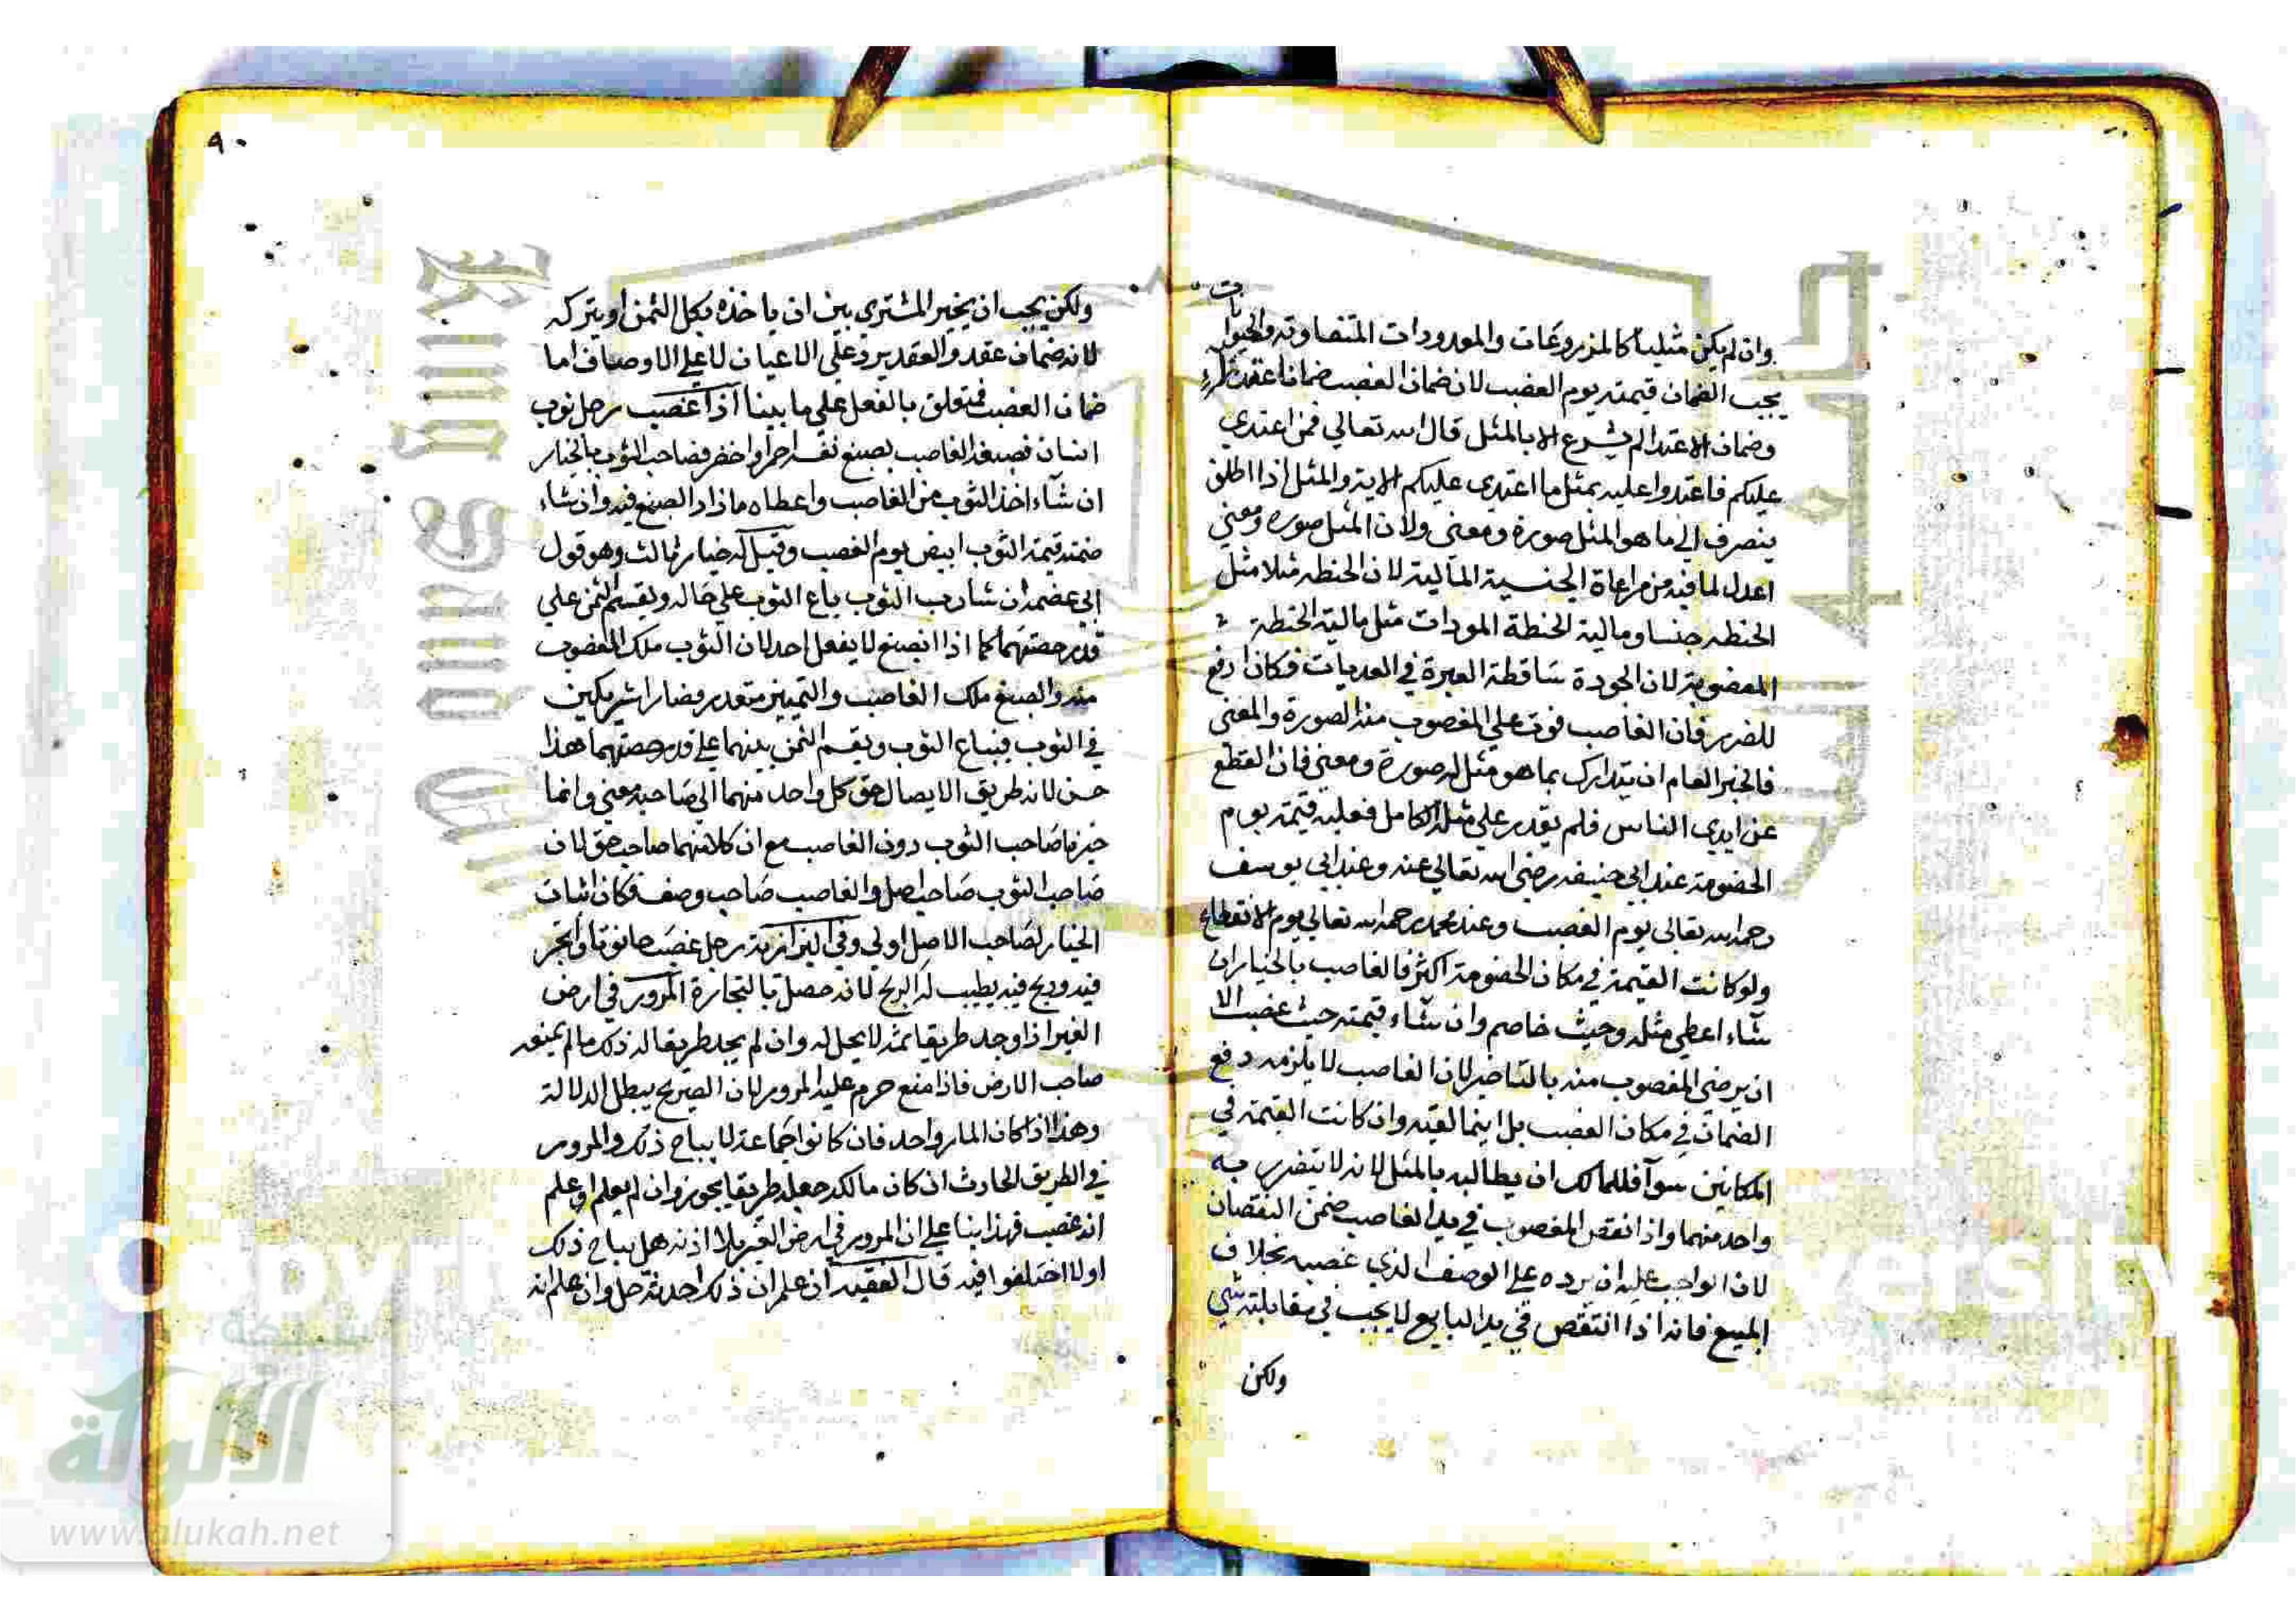 وان لم يكن مثليا كالمذروعات والمعدودات المتفاوته والحيوانات
يجب الضمان قيمته يوم الغصب لان ضمان الغصب ضمان اعتداء
وضمان الاعتدا لم يشرع الا بالمثل قال الله تعالي فمن اعتدي
عليكم فاعتدوا عليه بمثل ما اعتدى عليكم الاية والمثل اذا اطلق
ينصرف الي ما هو المثل صورة ومعنى ولان المثل صوره ومعني
اعدل لما فيه من مراعاة الجنسية المالية لان الحنطه مثلا مثل
الحنطه جنسا ومالية الحنطة المودات مثل مالية الحنطة
المغضوبة لان الجودة ساقطة العبرة في العديات فكان ادفع
للضرر فان الغاصب فوت علي المغصوب منه الصورة والمعنى
فالجبر العام ان يتدارك بما هو مثل له صورة ومعني فان القطع
عن ايدي الناس فلم يقدر علي مثله الكامل فعليه قيمته يوم
الخضومة عند ابي حنيفه رضى الله تعالي عنه وعند ابي يوسف
رحمه الله تعالى يوم الغصب وعند محمد رحمه الله تعالي يوم الانقطاع
ولو كانت القيمة في مكان الخضومة اكثر فالغاصب بالخيار ان
شاء اعطي مثله وحيث خاصم وان شاء قيمته حيث غضب الا
ان يرضى المغصوب منه بالتاخير لان الغاصب لا يلزمه دفع
الضمان في مكان الغصب بل اينما لقيه وان كانت القيمة في
المكانين سوآ فللمالك ان يطالبه بالمثل لانه لا يتضرر به
واحد منهما واذا نقص المغصوب في يد الغاصب ضمن النقصان
لان الواجب عليه ان يرده علي الوصف الذي غصبه بخلاف
المبيع فانه اذا انتقص في يد البايع لا يجب في مقابلته شي
ولكن
٩٠
ولكن يجب ان يخير المشترى بين ان ياخذه بكل الثمن او يتركه
لانه ضمان عقد والعقد يرد علي الاعيان لا علي الاوصاف اما
ضمان الغصب فمتعلق بالفعل علي ما بينا اذا غصب رجل ثوب
انسان فصبغه الغاصب بصبغ نفسه احمر او اخضر فصاحب الثوب بالخيار
ان شآء اخذ الثوب من الغاصب واعطاه ما زاد الصبغ فيه وان شاء
ضمنه قيمة الثوب ابيض يوم الغصب وقيل له خيار ثالث وهو قول
ابي عصمه ان شا رب الثوب باع الثوب علي حاله ويقسم الثمن علي
قدر حصتهما كما اذا انصبغ لا بفعل احد لان الثوب ملك المغصوب
منه والصبغ ملك الغاصب والتمييز متعدر فصارا شريكين
في الثوب فيباع الثوب ويقسم الثمن بينهما علي قدر حصتهما هذا
حسن لانه طريق الايصال حق كل واحد منهما الي صاحبه معني وانما
خيرنا صاحب الثوب دون الغاصب مع ان كلا منهما صاحب حق لان
صاحب الثوب صاحب اصل والغاصب صاحب وصف فكان اثبات
الخيار لصاحب الاصل اولي وفي البزازية رجل غصب حانوتا واتجر
فيه وربح فيه يطيب له الربح لانه حصل بالتجارة المرور في ارض
الغير اذا وجد طريقا ثمة لا يحل له وان لم يجد طريقا له ذلك ما لم يمنعه
صاحب الارض فاذا منع حرم عليه المرور لان الصريح يبطل الدلالة
وهذا اذا كان المار واحد فان كانوا جماعة لا يباح ذلك والمرور
في الطريق الحادث ان كان مالكه جعله طريقا يجوز وان لم يعلم او علم
انه غصب فهذا بنا علي ان المرور في ارض الغير بلا اذنه هل يباح ذلك
اولا اختلفوا فيه قال الفقيه ان علم ان ذلك احدثه حل وان علم انه
شبكة
الألوكة
www.alukah.net